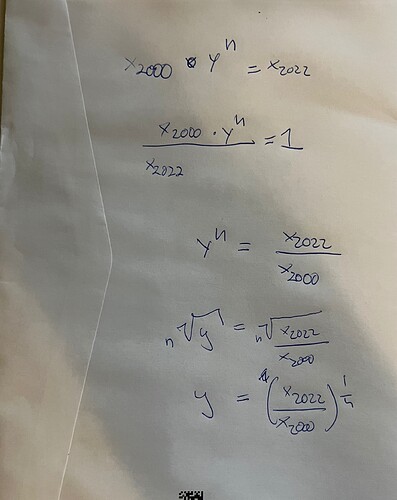 x₂₀₀₀ • yⁿ = x₂₀₂₂
x₂₀₀₀ · yⁿ / x₂₀₂₂ = 1
yⁿ = x₂₀₂₂ / x₂₀₀₀
ₙ√y = ₙ√(x₂₀₂₂ / x₂₀₀₀)
y = (x₂₀₂₂ / x₂₀₀₀)^(1/n)